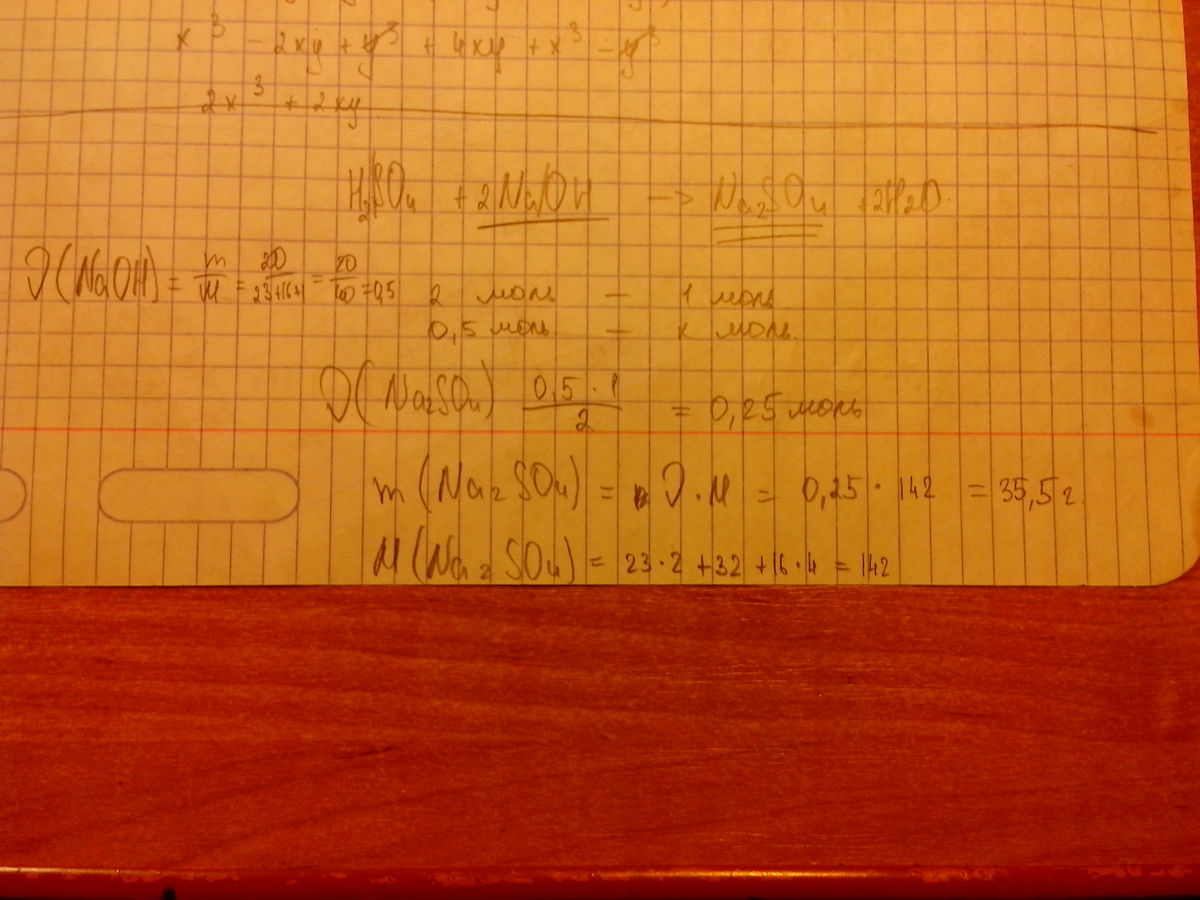 x³ - 2xy + y³ + 4xy + x³ - y³
2x³ + 2xy
H₂SO₄ + 2NaOH -> Na₂SO₄ + 2H₂O.
ν(NaOH) = m/M = 20/23+16+1 = 20/40 = 0,5
2 моль – 1 моль
0,5 моль – x моль.
ν(Na₂SO₄) 0,5 · 1/2 = 0,25 моль
m(Na₂SO₄) = ν · M = 0,25 · 142 = 35,5 г.
M(Na₂SO₄) = 23·2 + 32 + 16·4 = 142